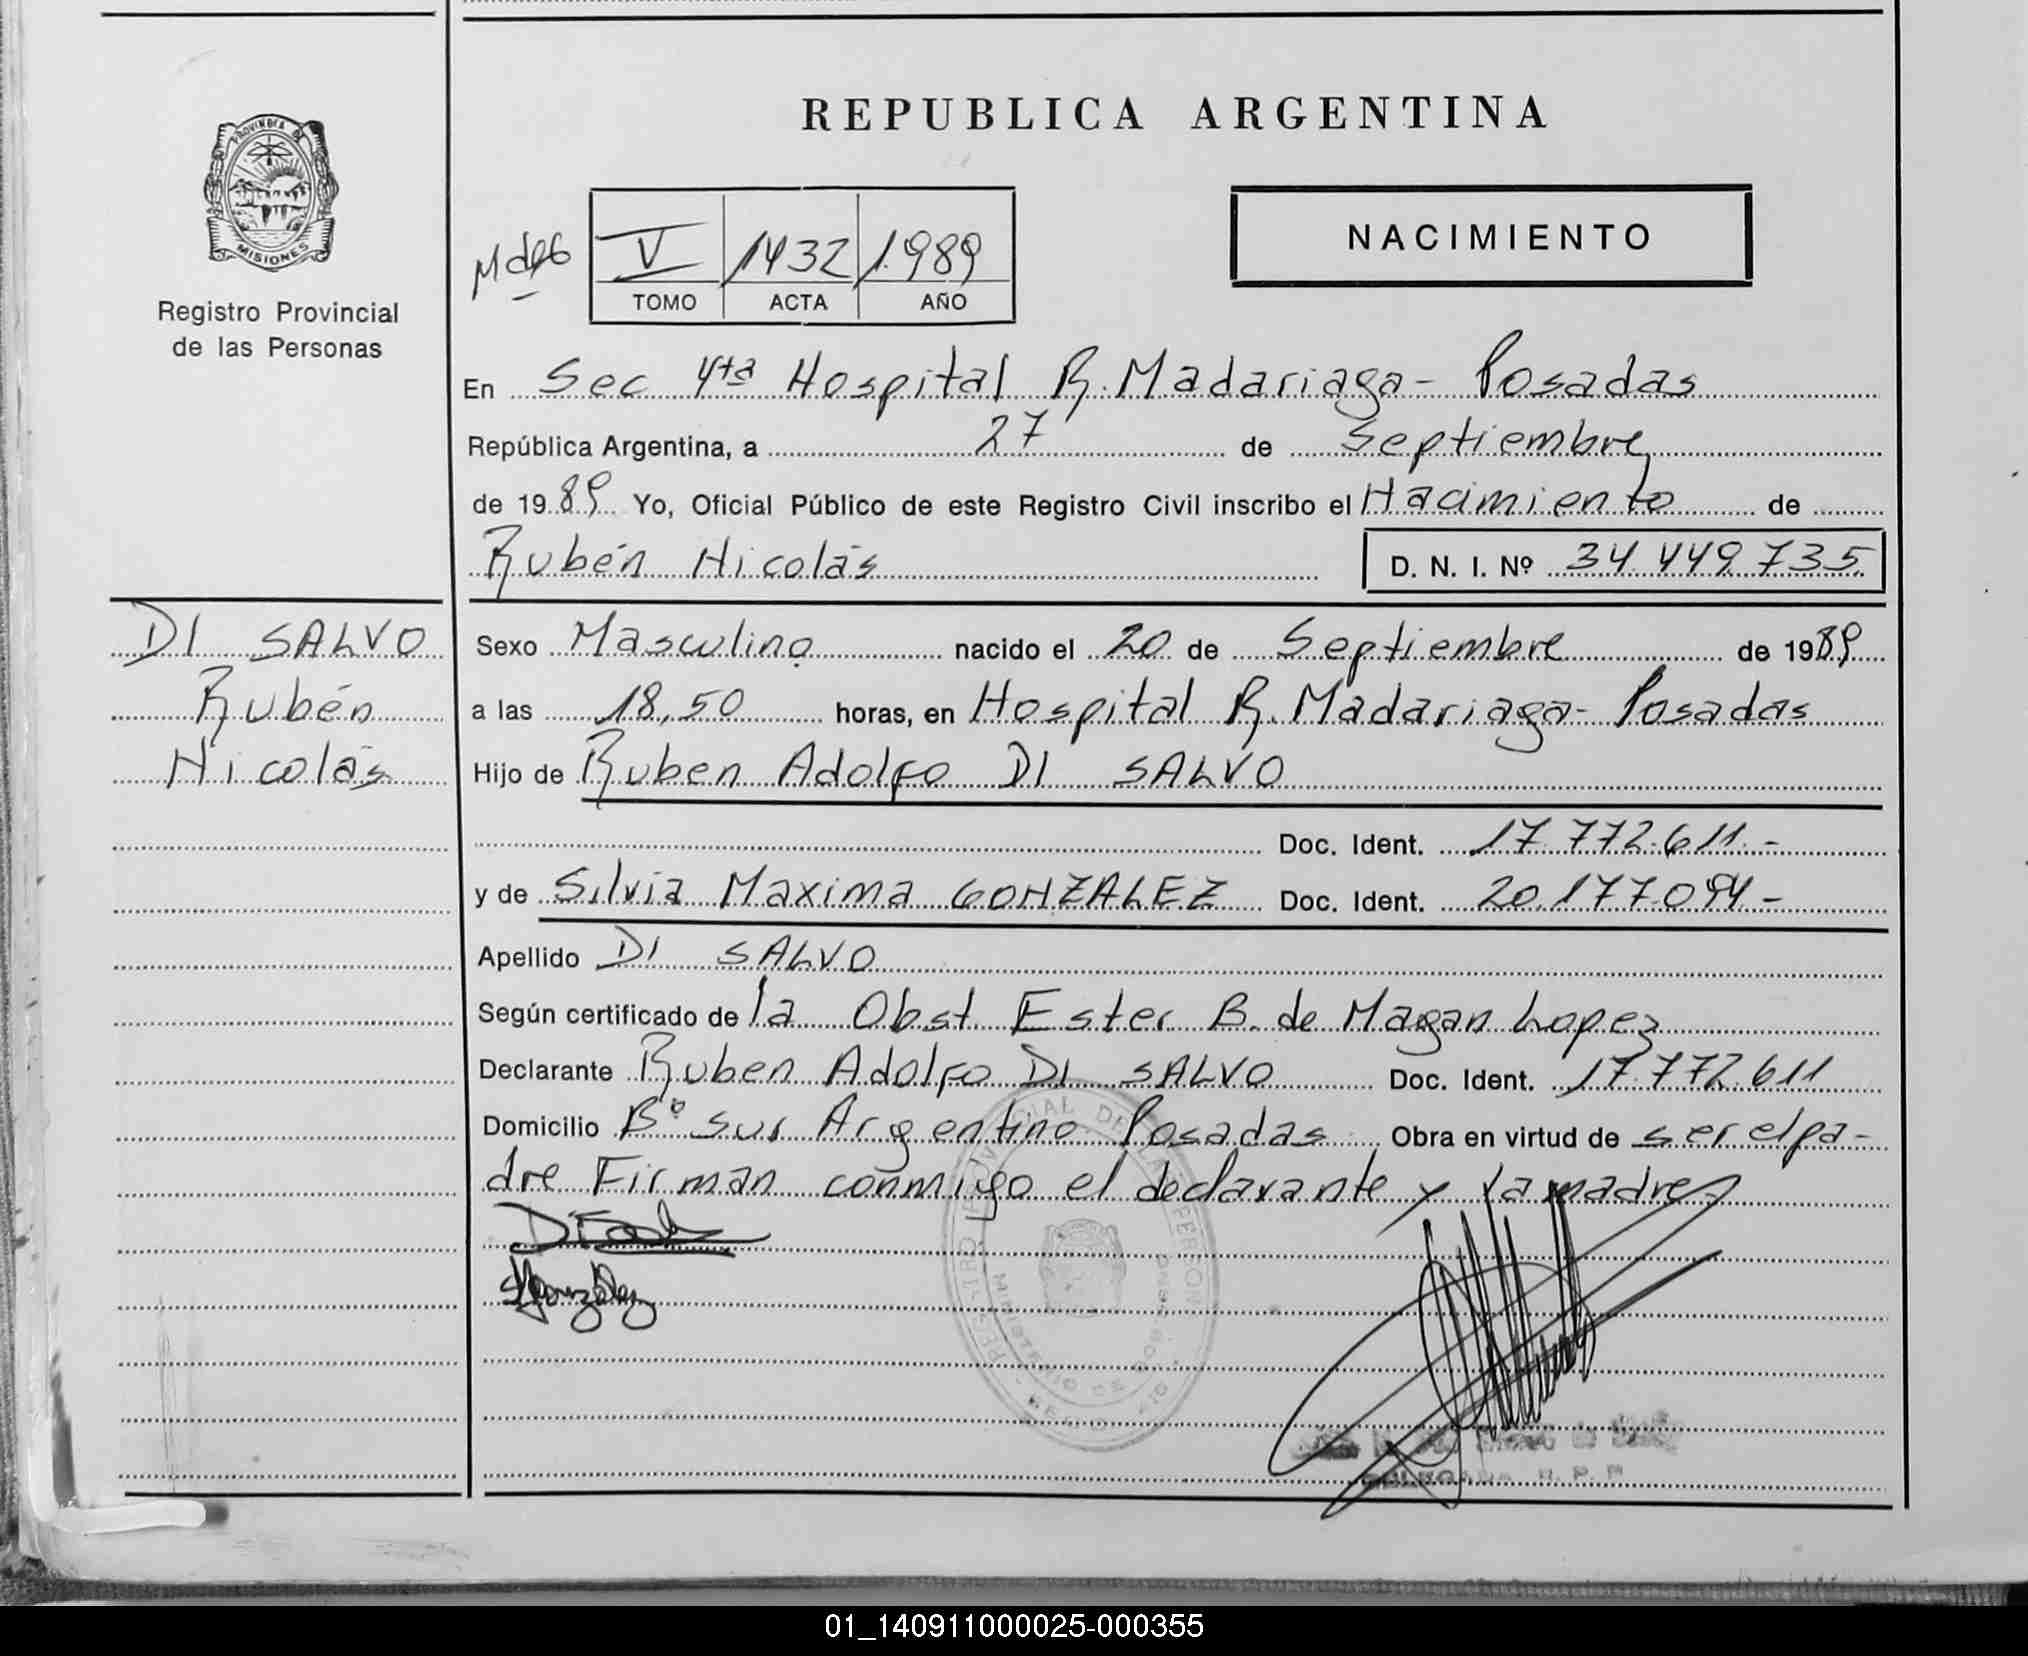 REPUBLICA ARGENTINA
PROVINCIA DE
MISIONES
Registro Provincial
de las Personas
V 1432 1.989
TOMO ACTA AÑO
NACIMIENTO
En Sec 4ta Hospital R. Madariaga - Posadas
República Argentina, a 27 de Septiembre
de 1989 Yo, Oficial Público de este Registro Civil inscribo el Nacimiento de
Rubén Nicolás D. N. I. Nº 34 449 735
DI SALVO
Rubén
Nicolás
Sexo Masculino nacido el 20 de Septiembre de 1989
a las 18,50 horas, en Hospital R. Madariaga - Posadas
Hijo de Ruben Adolfo DI SALVO
Doc. Ident. 17.772.611.-
y de Silvia Maxima GONZALEZ Doc. Ident. 20.177.094-
Apellido DI SALVO
Según certificado de la Obst Ester B. de Magan Lopez
Declarante Ruben Adolfo DI SALVO Doc. Ident. 17.772.611
Domicilio Bº Sur Argentino Posadas Obra en virtud de ser el pa-
dre Firman conmigo el declarante y la madre
SGonzález
REGISTRO PROVINCIAL DE LAS PERSONAS
MINISTERIO DE GOBIERNO
DELEGADA R. P. P.
01_140911000025-000355